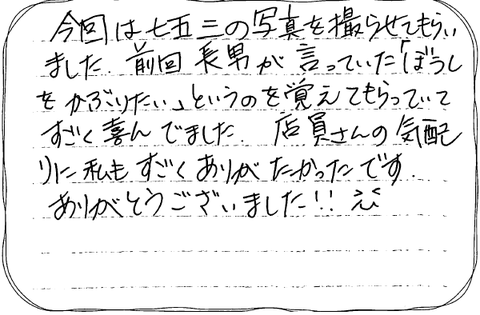 今回は七五三の写真を撮らせてもらい
ました。前回長男が言っていた「ぼうし
をかぶりたい」というのを覚えてもらっていて
すごく喜んでました。店員さんの気配
りに私もすごくありがたかったです。
ありがとうございました!!